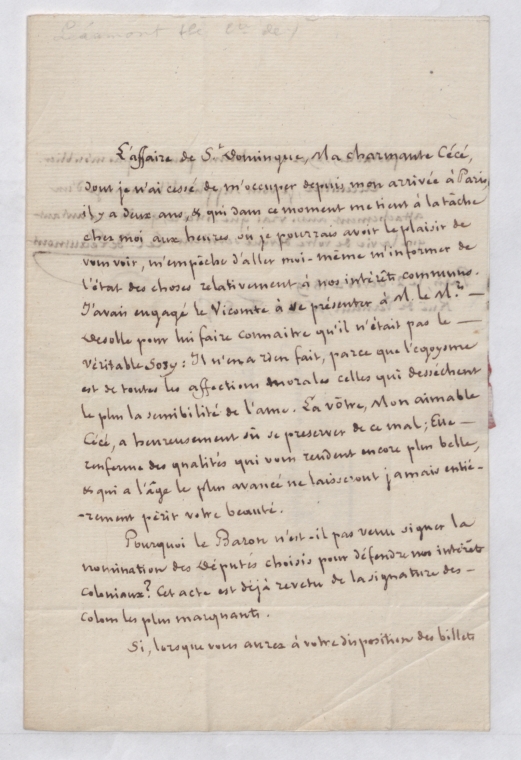 L'affaire de S.t Domingue, Ma charmante Cécé,
dont je n'ai cessé de m'occuper depuis mon arrivée à Paris,
il y a deux ans, & qui dans ce moment me tient à la tâche
chez moi aux heures où je pourrais avoir le plaisir de
vous voir, m'empêche d'aller moi-même m'informer de
l'état des choses relativement à nos intérêts communs.
J'avais engagé le Vicomte à se présenter à M. le M.is —
Desolle pour lui faire connaitre qu'il n'était pas le —
véritable Sosy: Il n'en a rien fait, parce que l'égoysme
est de toutes les affections morales celles qui dessèchent
le plus la sensibilité de l'ame. La vôtre, Mon aimable
Cécé, a heureusement sû se préserver de ce mal; Elle —
renferme des qualités qui vous rendent encore plus belle,
& qui a l'âge le plus avancé ne laisseront jamais entiè-
-rement périr votre beauté.
Pourquoi le Baron n'est-il pas venu signer la
nomination des Députés choisis pour défendre nos intérêts
Coloniaux? Cet acte est déjà revetu de la signature des —
Colons les plus marquants.
Si, lorsque vous aurez à votre disposition des billets